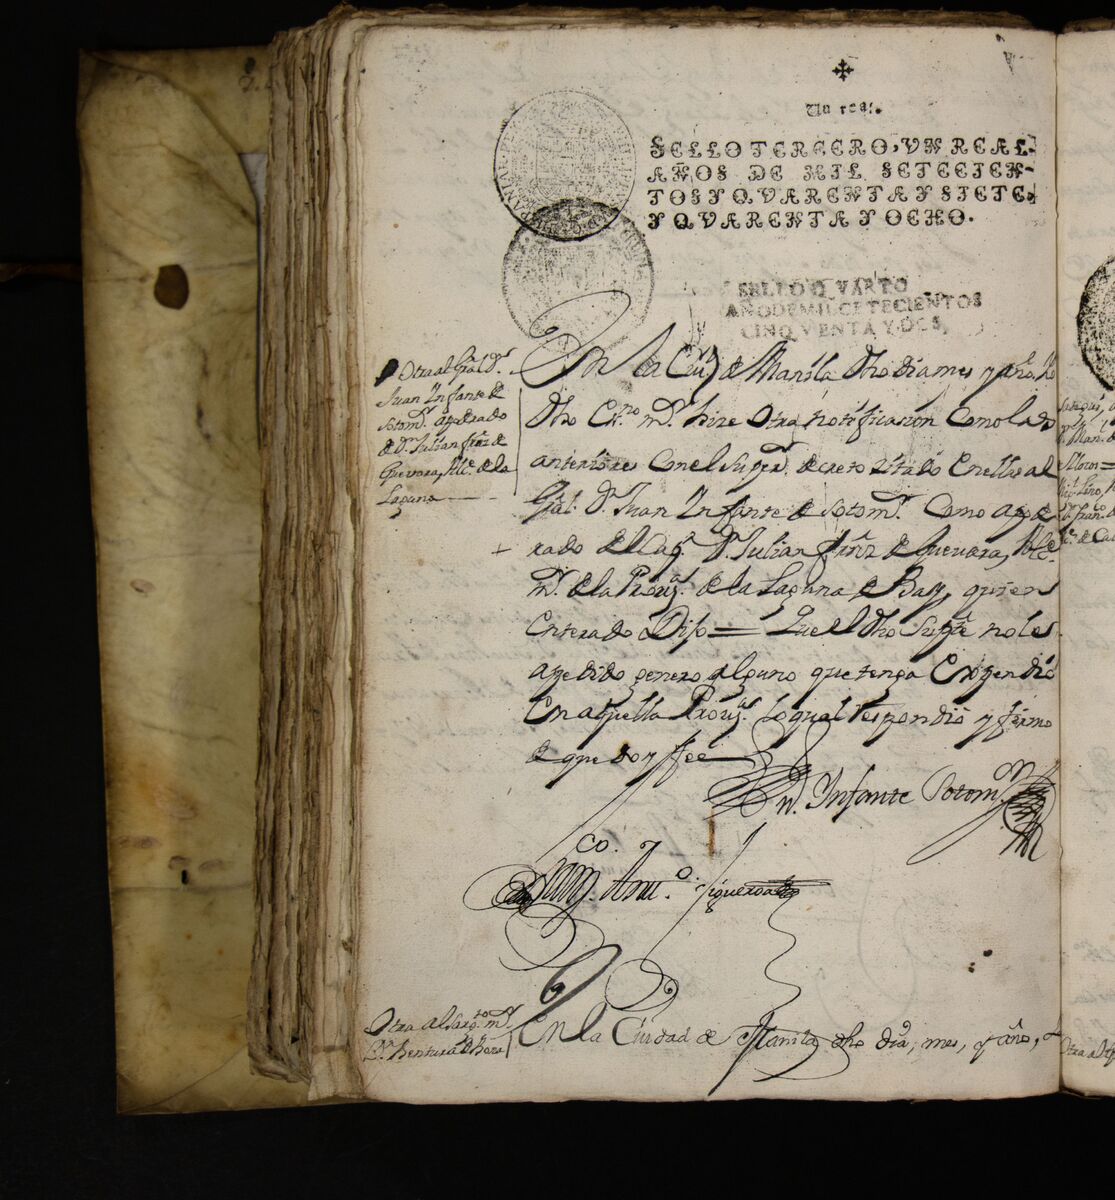 Un real.
SELLO TERCERO, UN REAL.
AÑOS DE MIL SETECIEN-
TOS Y QVARENTA Y SIETE,
Y QVARENTA Y OCHO.
SELLO QVARTO
AÑO DE MIL CETECIENTOS
CINQVENTA Y DOS,
Otra al Gral. Dn.
Juan Infante de
Sotomr. apoderado
de Dn. Julian frñz de
Guevara, Alce. de la
Laguna
En la Ciud. de Manila dho dia mes y año, Yo
dho Essno. mr. hize otra notificasion como las
anteriores con el Superr. decreto zitado en ellas al
Gral. Dn. Juan Infante de Sotomr. como apode
rado del Cap. Dn. Julian frñz de Guevara, Alce.
mr. de la Prova. de la Laguna de Bay, quien
Enterado Dijo = Que el dho Supte no les
a pedido genero alguno que tenga Expendio
En aquella Prova. lo qual respondio y firmo
de que doy fee
Jn. Infante Sotomr.
Juan Anto. Figueroa
Otra al Sargto. mr.
Dn. Bentura de
En la Ciudad de Manila dho dia, mes, y año,